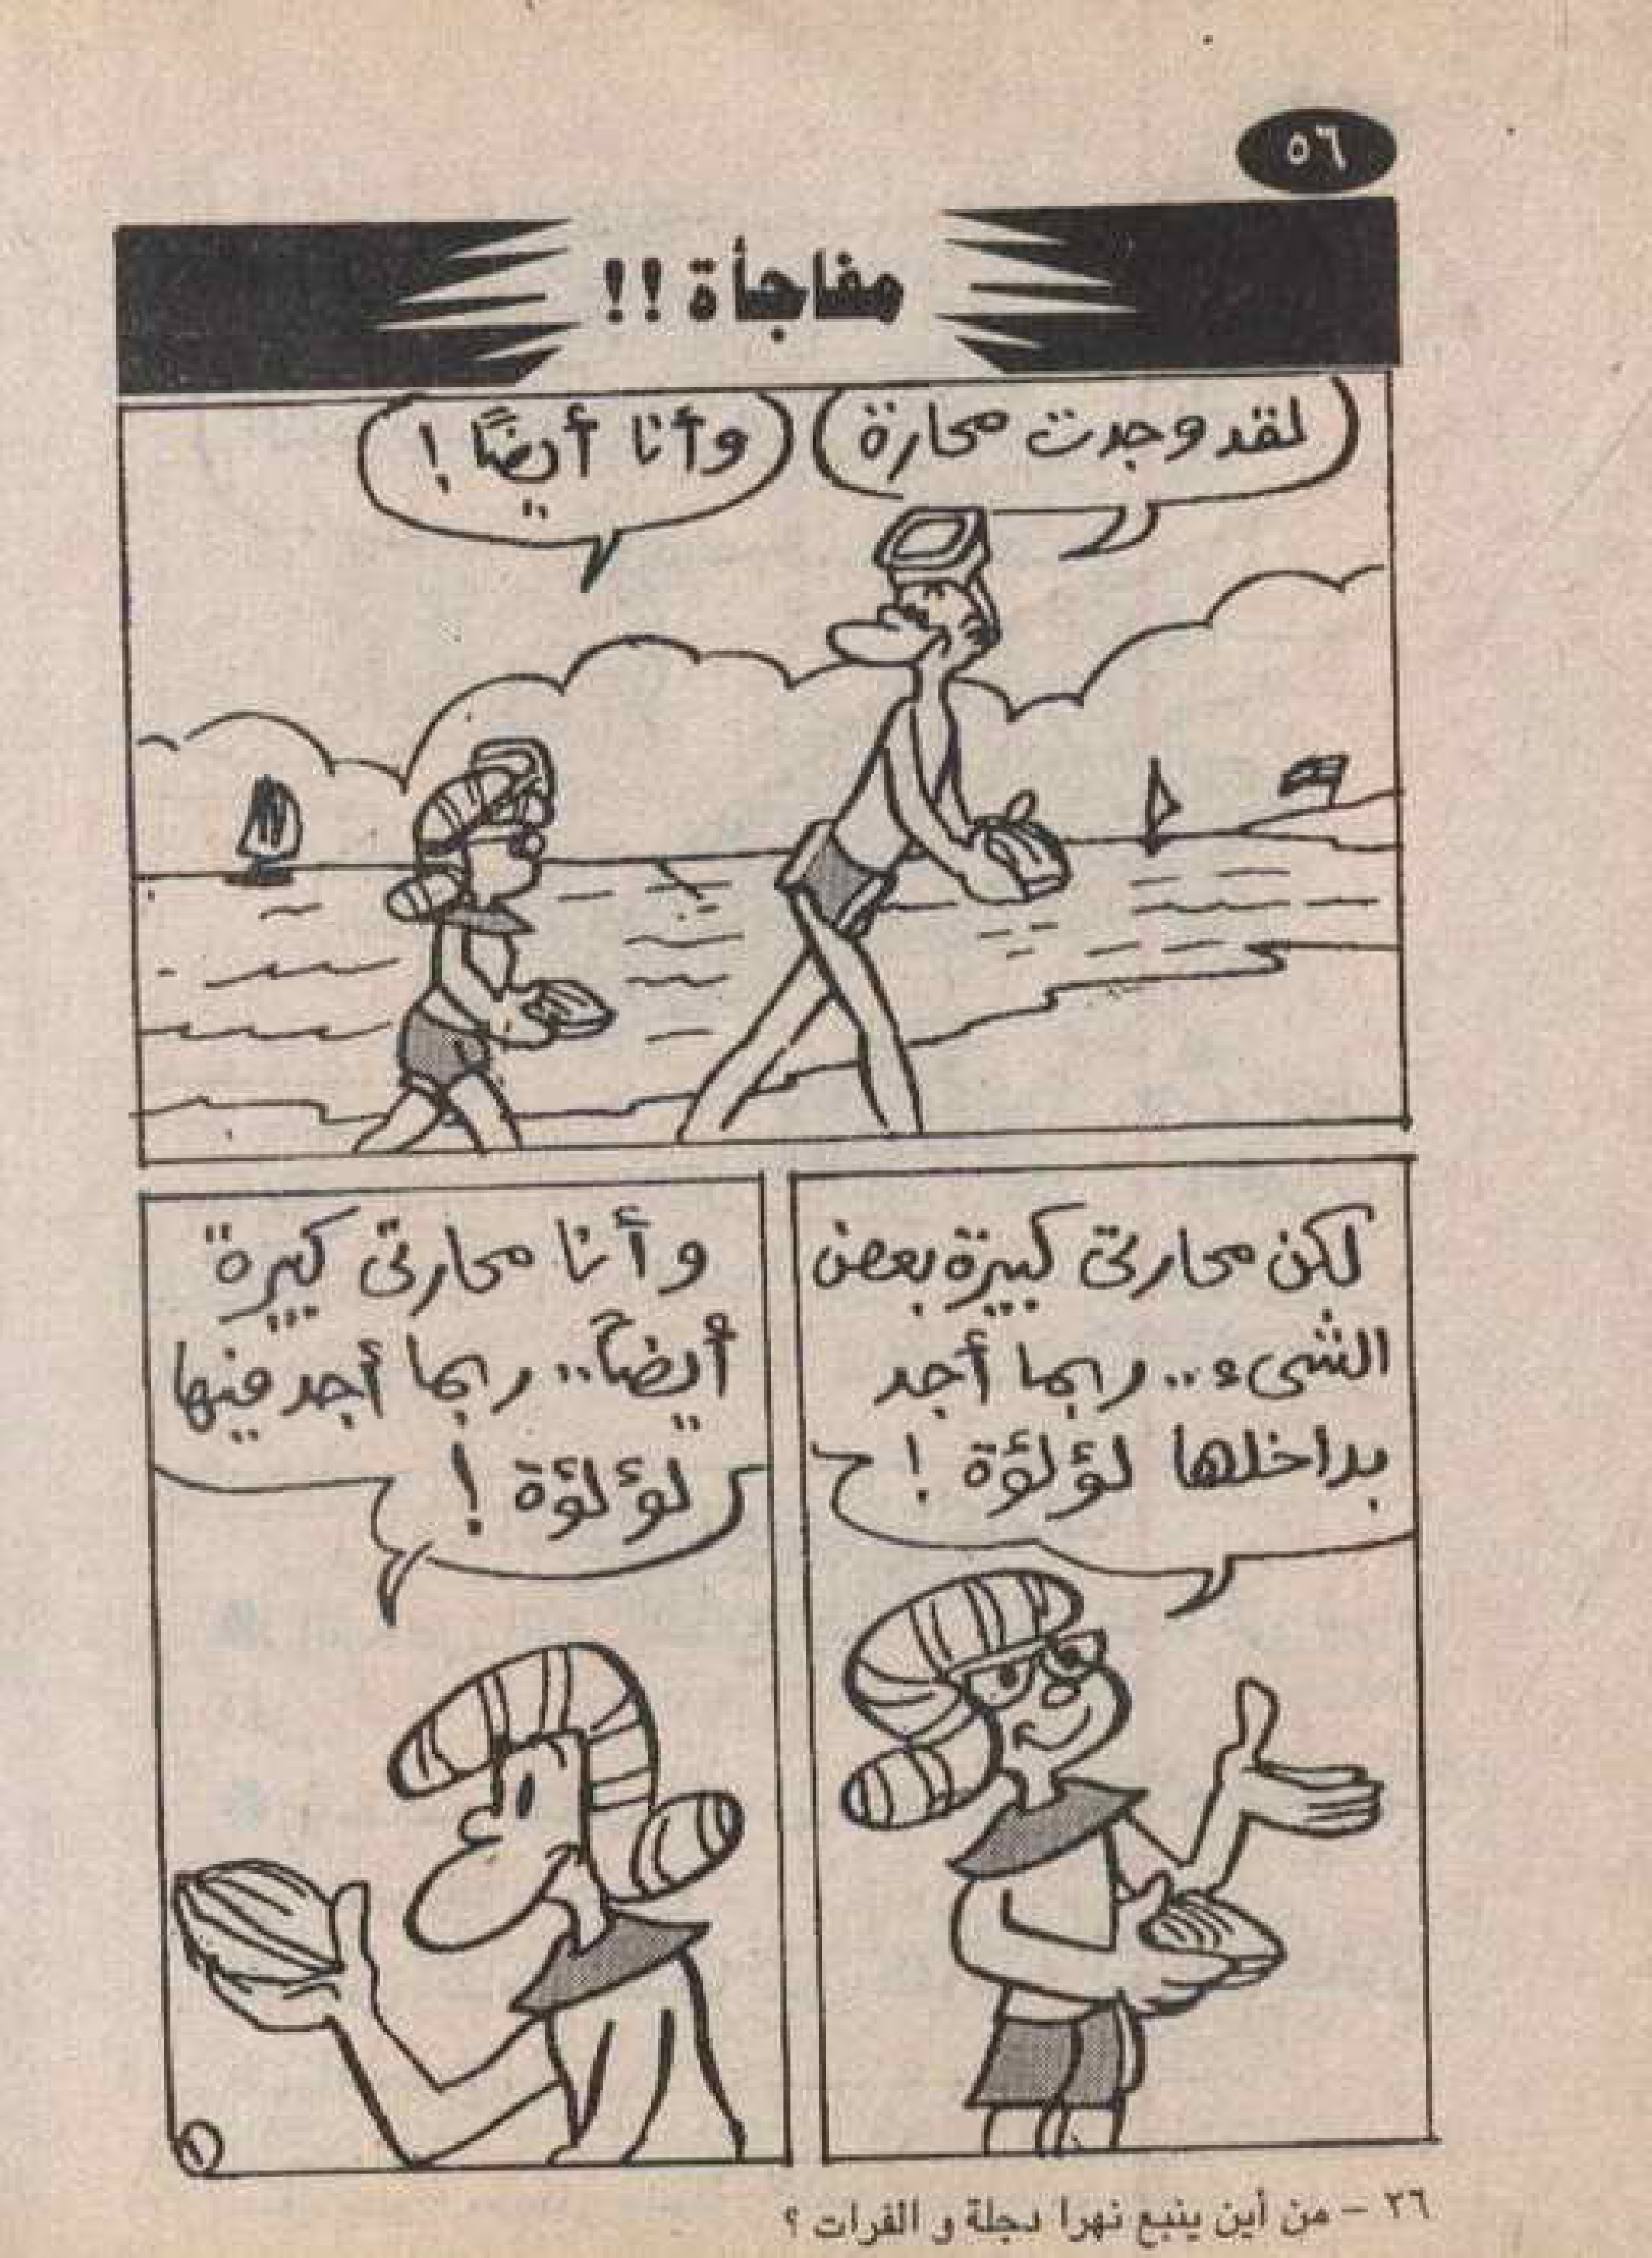 ٥٦
مفاجأة !!
لقد وجدت محارة
وأنا أيضًا !
لكن محارتى كبيرة بعض
الشىء .. ربما أجد
بداخلها لؤلؤة !
وأنا محارتى كبيرة
أيضاً .. ربما أجد فيها
لؤلؤة !
١
٣٦ - من أين ينبع نهرا دجلة و الفرات ؟